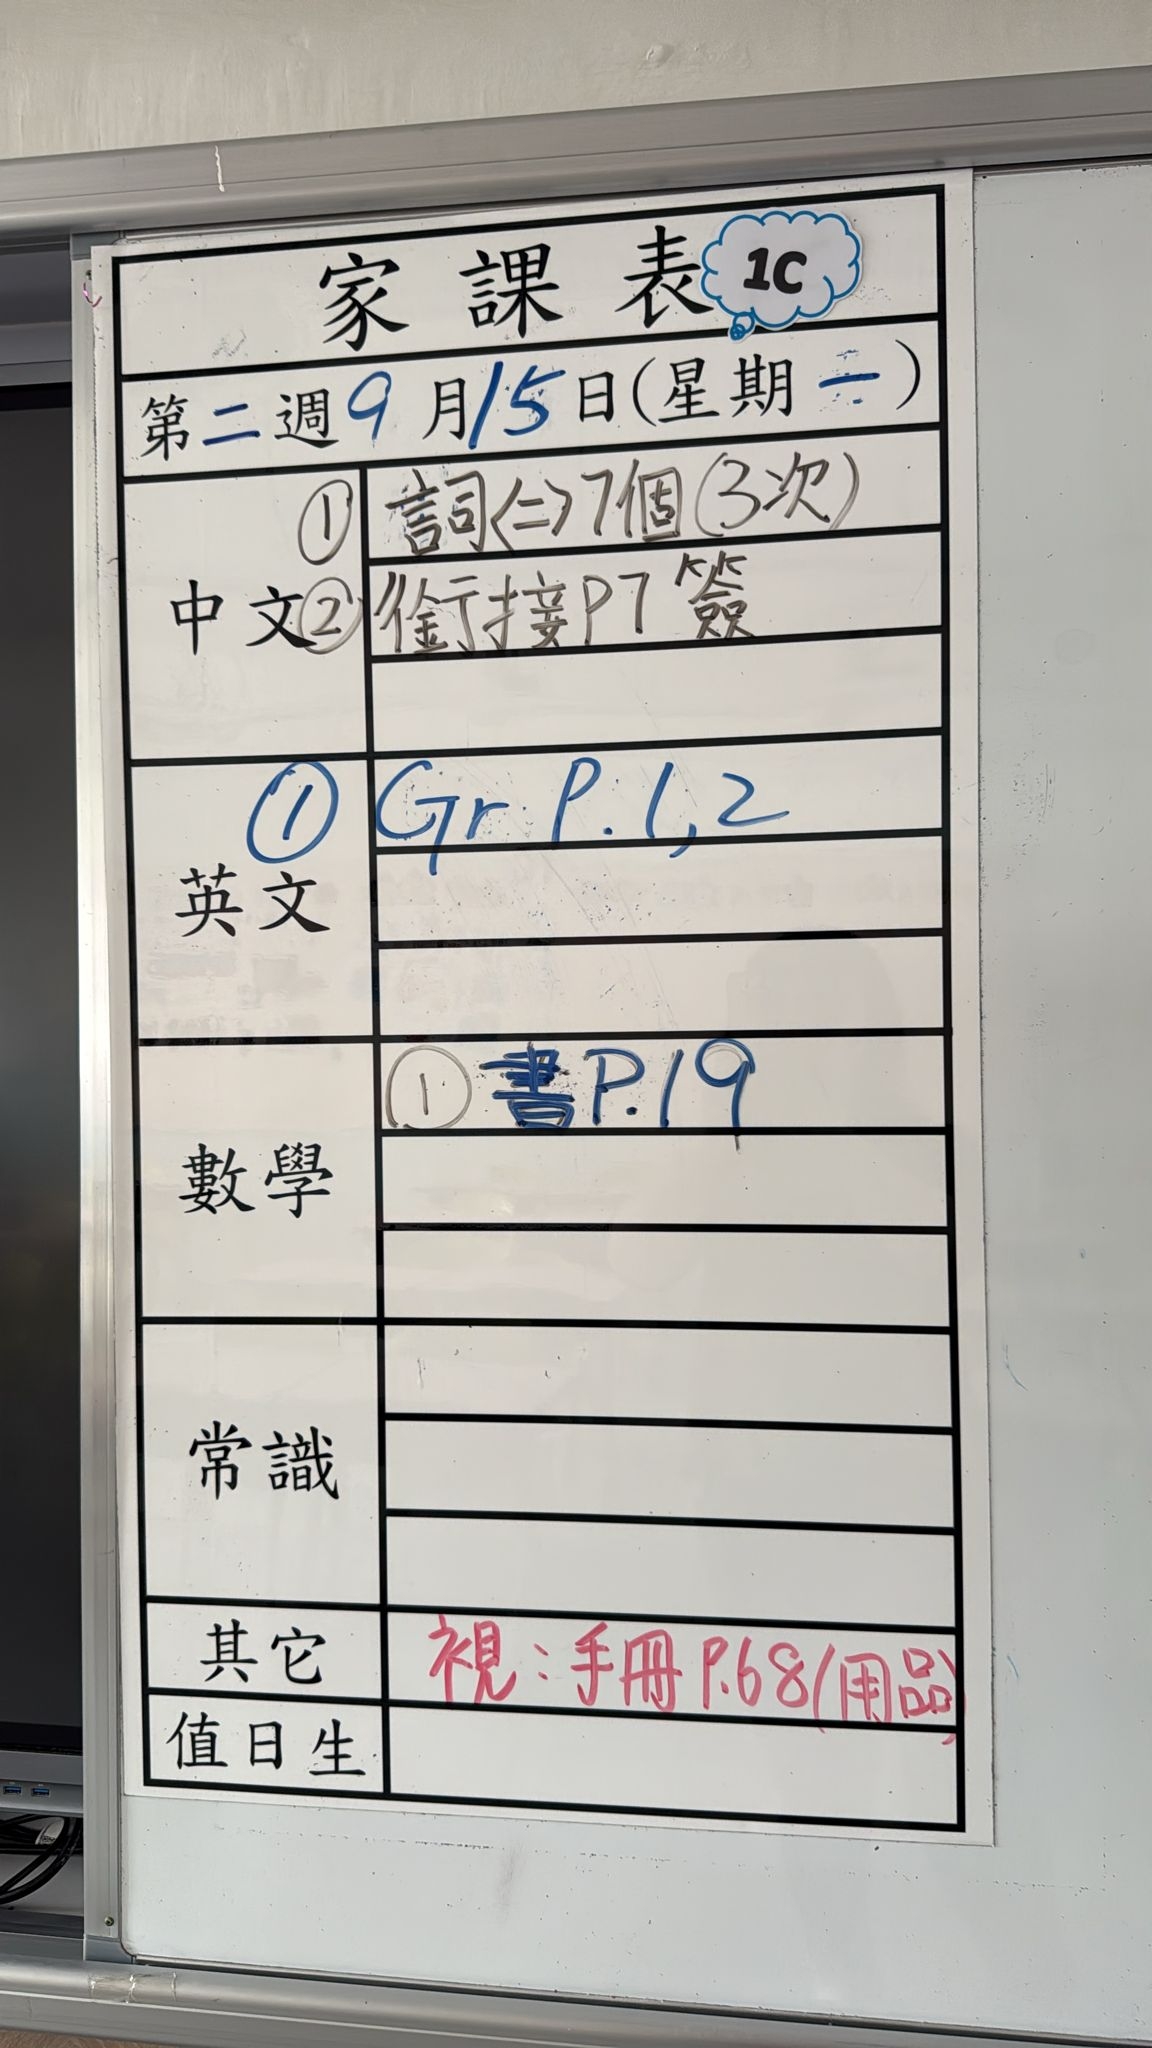 家課表 1C
第二週9月15日(星期一)
中文
① 詞(二)7個(3次)
② 銜接P7簽
英文
① Gr P.1,2
數學
① 書P.19
常識
其它
視：手冊P.68(用品)
值日生